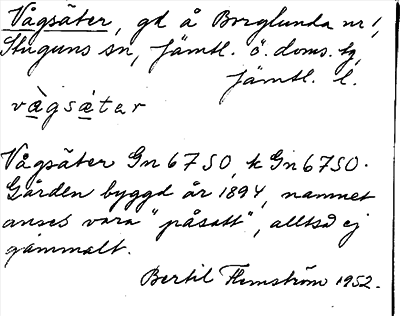 Vågsäter, gd å Borglunda nr 1,
Stuguns sn, Jämtl. ö. doms. tg,
Jämtl. l.
vægsætar
Vågsäter Gn 67 SO, k Gn 67 SO.
Gården byggd år 1894, namnet
anses vara "påsatt", alltså ej
gammalt.
Bertil Flemström 1952.